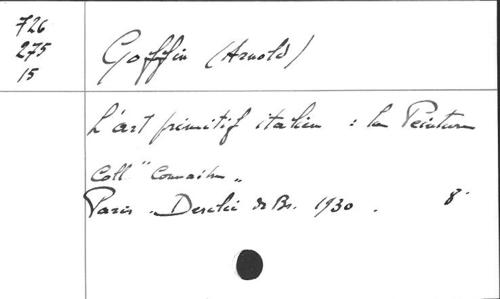 726
275
15
Goffin (Arnold)
L'art primitif italien : la Peinture
Coll "Connaitre"
Paris . Desclée de Br. 1930 . 8°